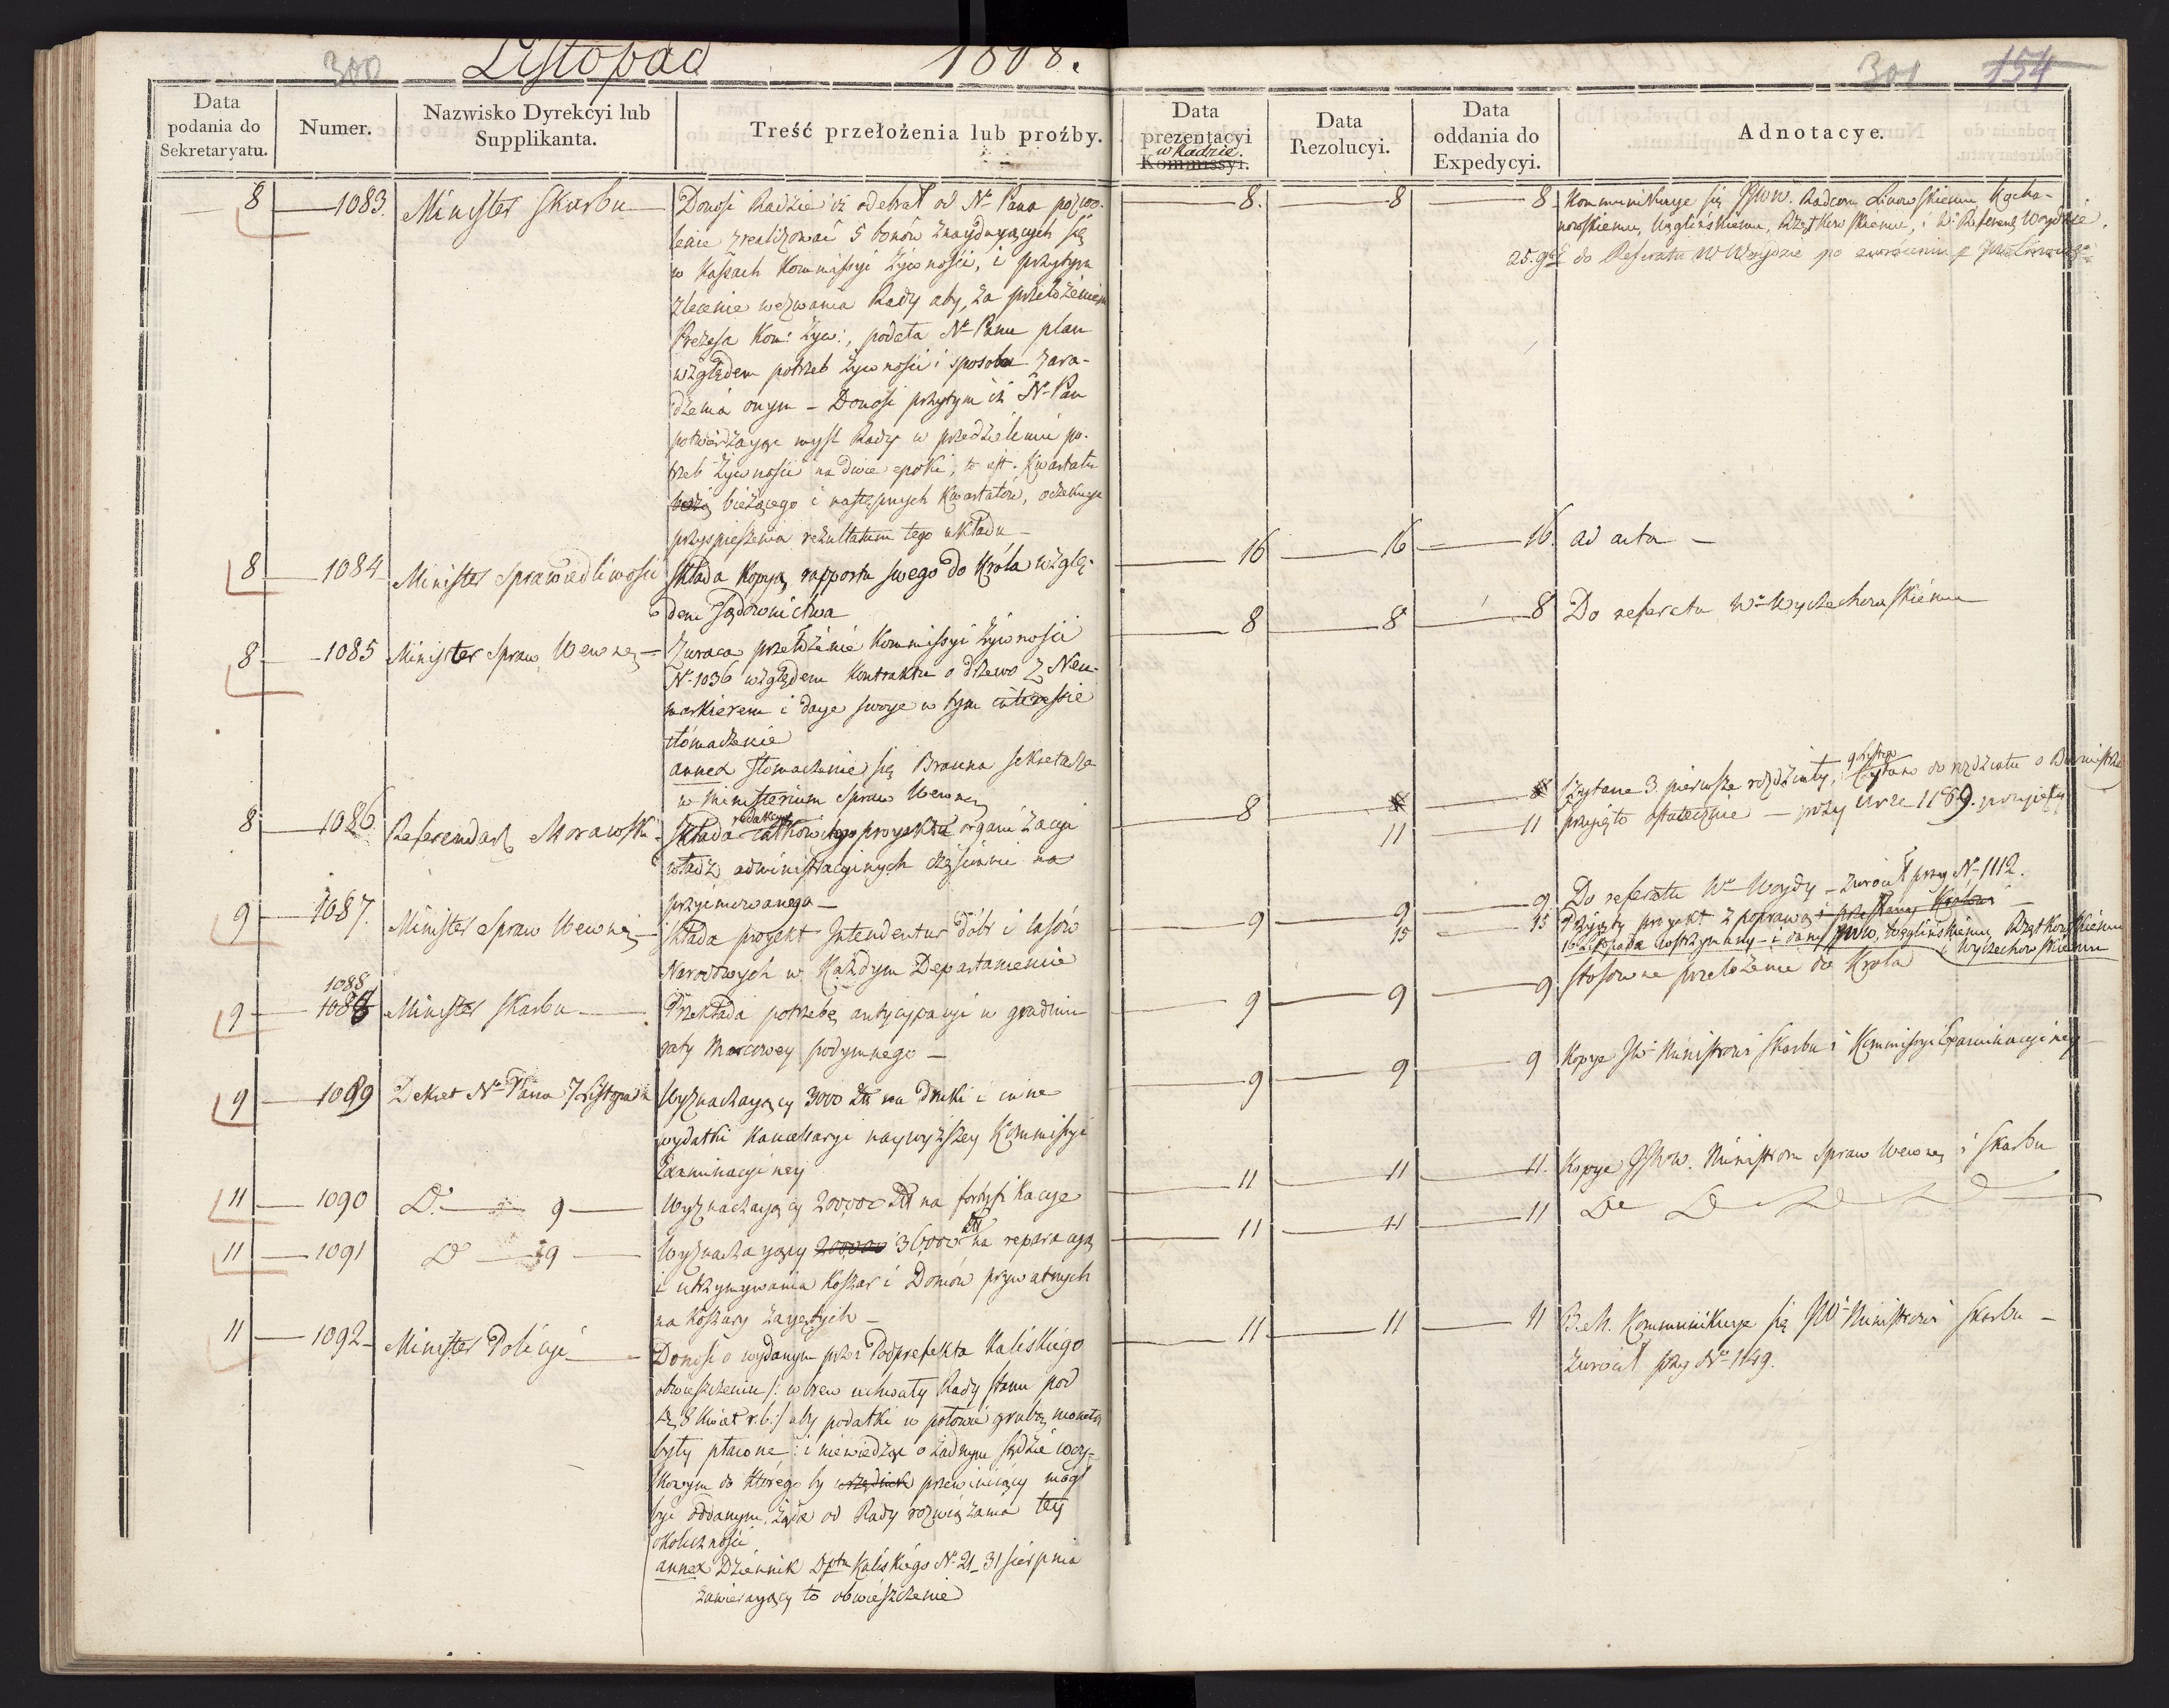 300 Listopad 1808. 301 154
Data podania do Sekretaryatu.
Numer.
Nazwisko Dyrekcyi lub Supplikanta.
Treść przełożenia lub proźby.
Data prezentacyi w Radzie. Kommissyi.
Data Rezolucyi.
Data oddania do Expedycyi.
Adnotacye.
8 1083. Minister Skarbu
Donosi Radzie iż odebrał od No Pana pozwo-
lenie zrealizować 5 bonów znayduyących się
w Kassach Kommissyi Żywności, i przytym
zlecenie wezwania Rady aby, za przełożeniem
Prezesa Kom: Żyw:, podała No Panu plan
względem potrzeb żywności i sposobu zara-
dzenia onym – Donosi przytym iż No Pan
potwierdzaiąc myśl Rady w przedzieleniu po-
trzeb żywności na dwie epoki, to iest: kwartału
bieżącego i następnych kwartałów, oczekuje
przyspieszenia rezultatum tego układu –
8. 8 8 Kommunikuje się JWW. Radcom Linowskiemu, Kocha-
nowskiemu, Węglińskiemu, Rzętkowskiemu, i Wu Referend. Woydzie.
25. 9br do Referatu W Woydzie po zwróceniu
8 1084 Minister Sprawiedliwości
Składa kopyą rapportu swego do Króla wzglę-
dem Sądownictwa
16 16 16. ad acta –
8 1085 Minister Spraw Wewnę
Zwraca przełożenie Kommissyi Żywności
N. 1036 względem kontraktu o drzewo z Neu-
markierem i daje swoje w tym interessie
tłómaczenie
annex tłomaczenie się Brauna sekretarza
w Ministerium Spraw Wewnę
8 8 8 Do referatu Wo Wyczechowskiemu
8 1086 Referendarz Morawski
Składa redakcyą całkowitego proyektu organizacyi
władz administracyinych częściami na
przyimowanego –
8 8 8 Czytane 3. pierwsze rozdziały, 9 Listop. Czytano do rozdziału o Burmistrzu
11 11 przyięto ostatecznie – przy Nrze 1189. przyięty
9 1087. Minister Spraw Wewnę
składa proyekt Intendentur dóbr i lasów
Narodowych w każdym Departamencie
9 9 9. Do referatu Wo Woydy – zwrócił przy N. 1112.
15 15 Przyięty proyekt z poprawą i przesłany Królowi –
16 Listopada wstrzymany – i dany JWW. Węglińskiemu, Rzętkowskiemu
i Wyczechowskiemu
9 1088 1088 Minister Skarbu
Przekłada potrzebę antycypacyi w grudniu
raty Marcowey podymnego –
9 9 9 stosowne przełożenie do Króla
9 1089 Dekret No Pana 7 Listopada
Wyznaczaiący 3000 zł na druki i inne
wydatki Kancellaryi naywyższey Kommissyi
Examinacyiney
9 9 9 Kopye JW Ministrowi Skarbu i Kommissyi Examinacyiney
11 1090 Do 9
Wyznaczaiący 200,000 zł na fortyfikacye
11 11 11. Kopye JJWW. Ministrom Spraw Wewnę i Skarbu
11 1091 Do 9
Wyznaczaiący 200,000 36,000 zł na reparacyą
i utrzymywania koszar i Domów prywatnych
na koszary zaiętych –
11 11 11 Do Do Do Do
11 1092 Minister Policyi
Donosi o wydanym przez Podprefekta Kaliskiego
obwieszczeniu /: wbrew uchwały Rady Stanu pod
d. 8 Kwiet. r.b:/ aby podatki w połowie grubą monetą
były płacone: i niewiedząc o żadnym sądzie
do którego by urzędnik przewiniaiący mógł
być oddanym, żąda od Rady rozwiązania tey
okoliczności
annex Dziennik Dptu Kaliskiego N. 21 – 31 Sierpnia
zawieraiący to obwieszczenie
11 11 11 B.M. Kommunikuje się JWo Ministrowi Skarbu –
zwrócił przy No 1149.